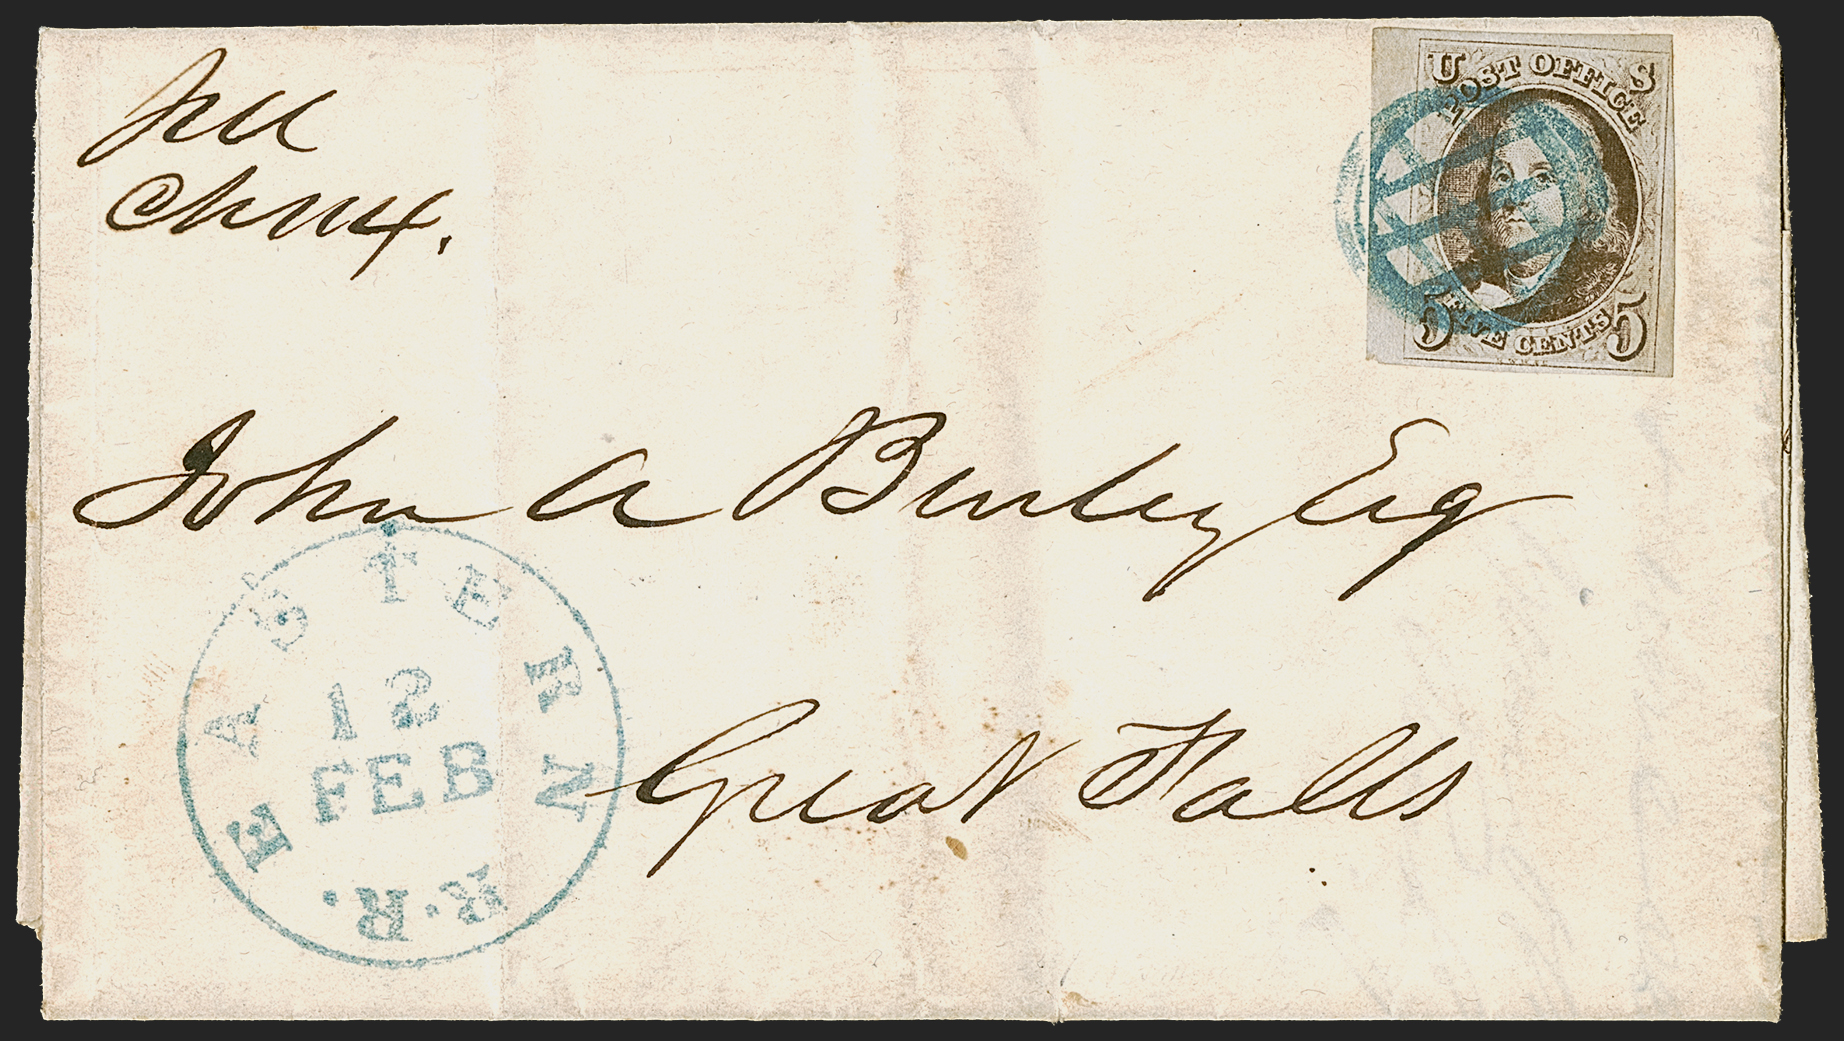 U S
POST OFFICE
FIVE CENTS
5 5
John A Burley Esq
EASTERN R.R.
12
FEB
Great Falls